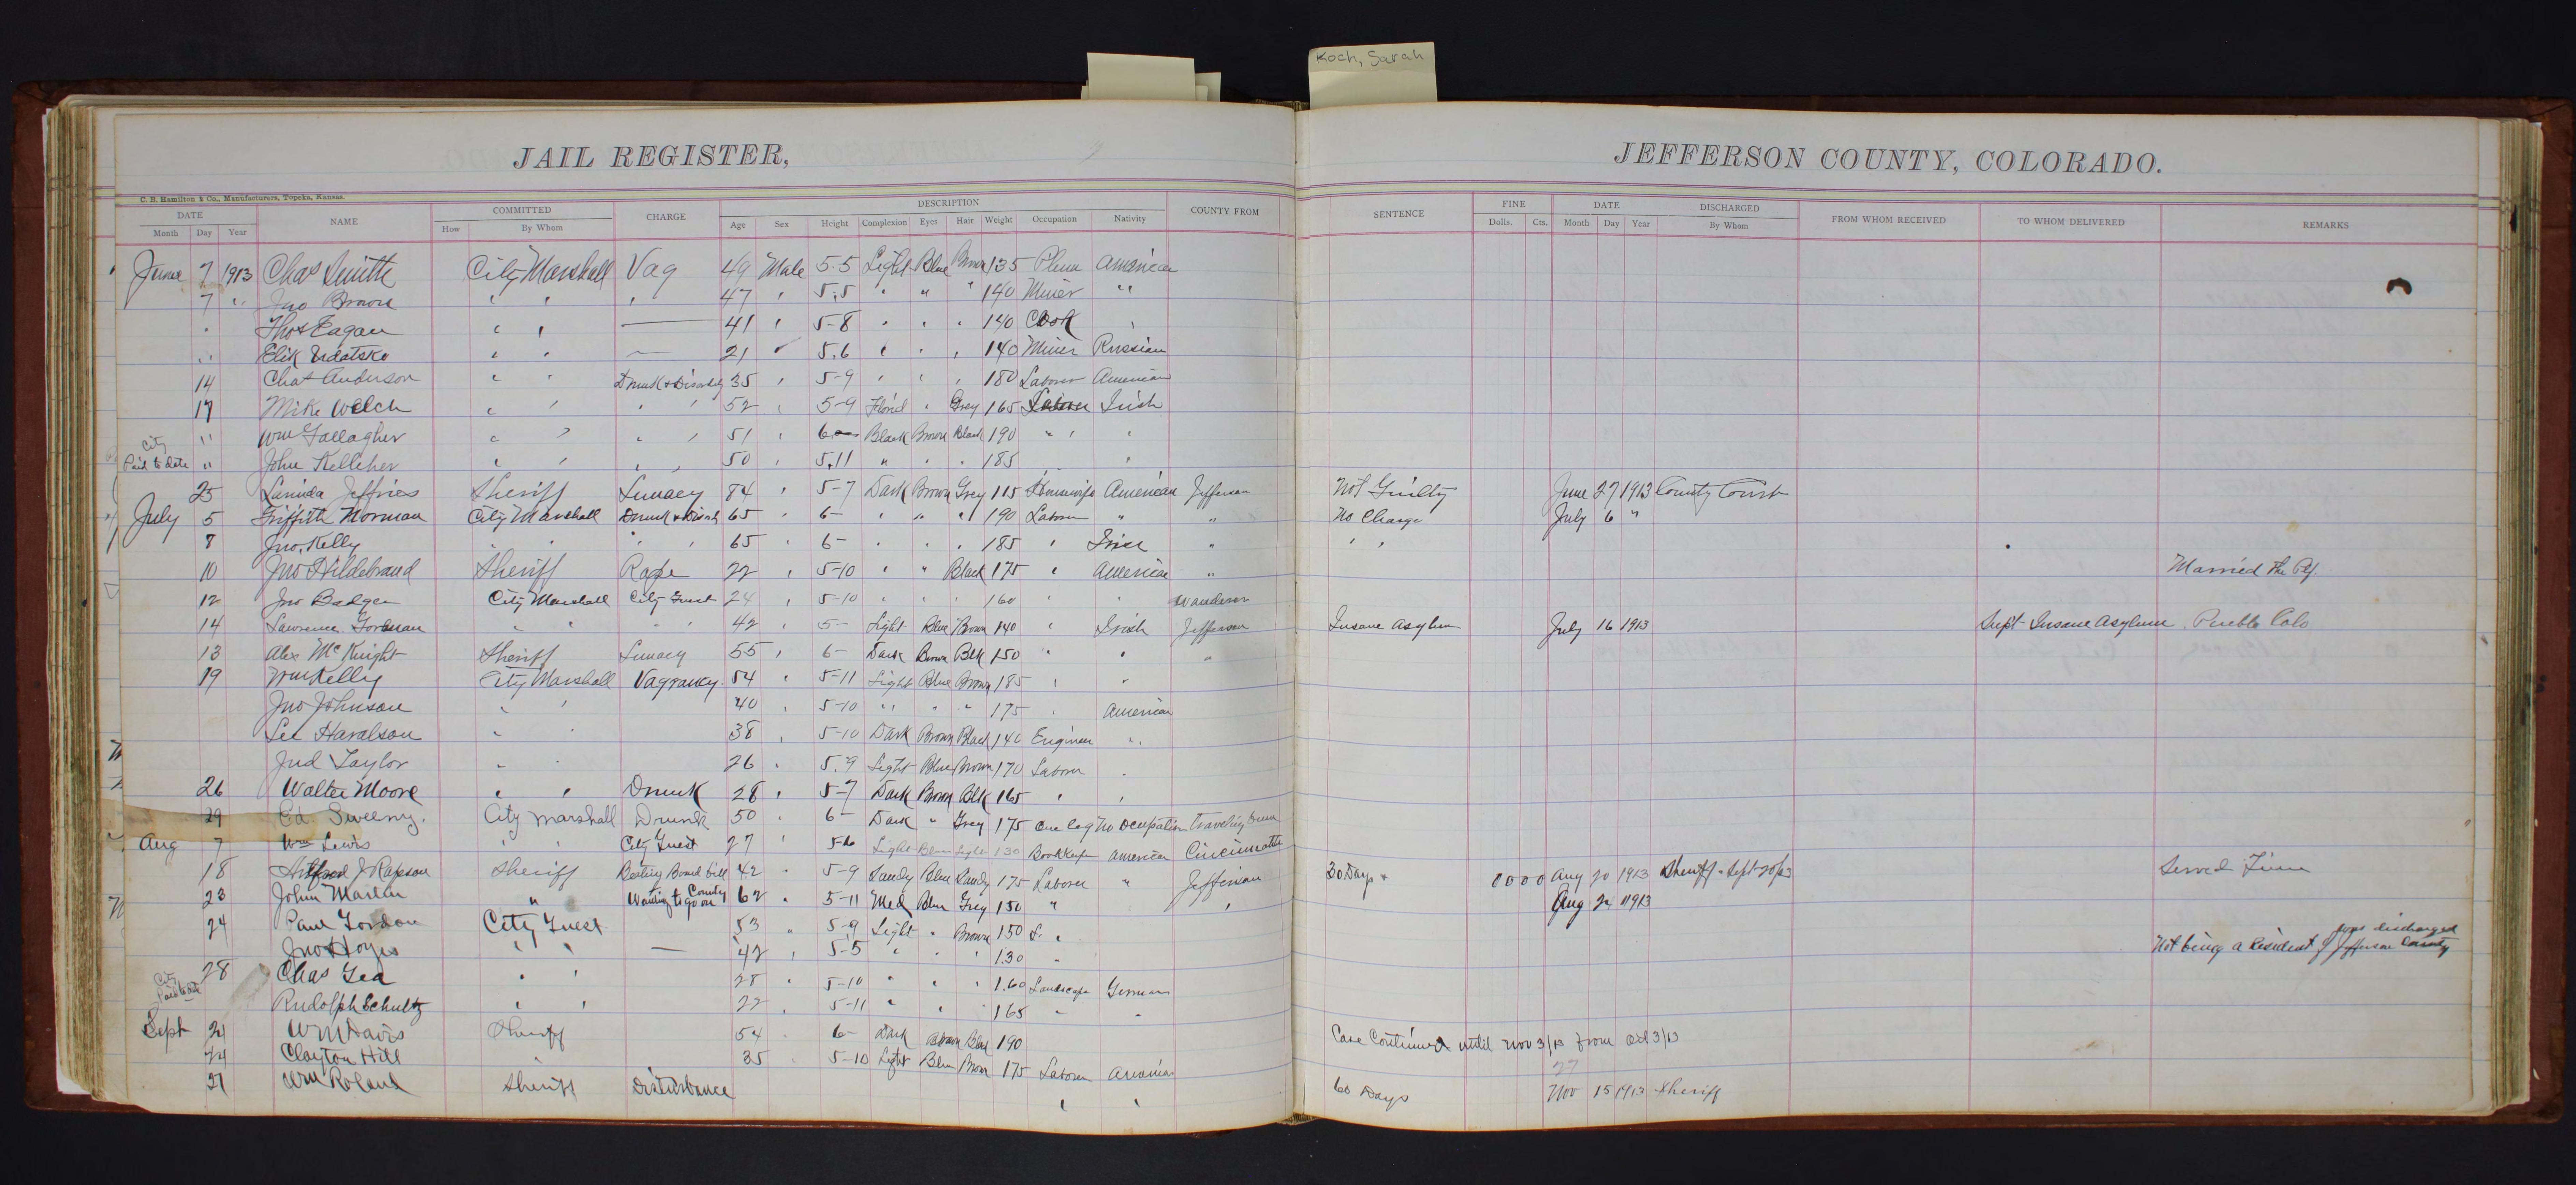 Koch, Sarah
JAIL REGISTER, JEFFERSON COUNTY, COLORADO.
C. B. Hamilton & Co., Manufacturers, Topeka, Kansas.
DATE NAME COMMITTED CHARGE DESCRIPTION COUNTY FROM SENTENCE FINE DATE DISCHARGED FROM WHOM RECEIVED TO WHOM DELIVERED REMARKS
Month Day Year How By Whom Age Sex Height Complexion Eyes Hair Weight Occupation Nativity Dolls. Cts. Month Day Year By Whom
June 7 1913 Chas Smith City Marshall Vag 49 Male 5-5 Light Blue Brown 135 American
7 " Jno Brown " " " 47 " 5,5 " " " 140 Miner "
" Thos Eagan " " — 41 " 5-8 " " " 140 Cook "
" Elik " " — 21 " 5,6 " " " 140 Miner Russian
14 Chas Anderson " " Drunk & Disorderly 35 " 5-9 " " " 180 Laborer American
17 Mike Welch " " " " 52 " 5-9 Florid " Grey 165 Laborer Irish
City " Wm Gallagher " " " " 51 " 6 — Black Brown Black 190 " " "
Paid to date " John Kelliher " " " " 50 " 5,11 " " " 185 "
25 Jeffries Sheriff Lunacy 84 " 5-7 Dark Brown Grey 115 Housewife American Jefferson Not Guilty June 27 1913 County Court
July 5 Griffith Norman City Marshall Drunk & Disord 65 " 6- " " " 190 Laborer " " No Charge July 6 "
8 Jno. Kelly " " " " 65 " 6- " " " 185 " Irish " " "
10 Jno Hildebrand Sheriff Rape 22 " 5-10 " " Black 175 " American " Married the
12 Jno Badger City Marshall City Guest 24 " 5-10 " " " 160 " " Wanderer
14 Lawrence Gorman " " " " 42 " 5- Light Blue Brown 140 " Irish Jefferson Insane Asylum July 16 1913 Supt Insane Asylum. Pueblo Colo
13 Alex McKnight Sheriff Lunacy 55 " 6- Dark Brown Blk 150 " " "
19 Wm Kelly City Marshall Vagrancy 54 " 5-11 Light Blue Brown 185 " "
Jno Johnson " " 40 " 5-10 " " " 175 " American
Lee Haralson " " 38 " 5-10 Dark Brown Black 140 Engineer "
Jud Taylor " " 26 " 5.9 Light Blue Brown 170 Laborer "
26 Walter Moore " " Drunk 28 " 5-7 Dark Brown Blk 165 " "
29 Ed. Sweeny. City Marshall Drunk 50 " 6- Dark " Grey 175 One leg No Occupation Traveling
Aug 7 Wm Lewis " " City Guest 27 " 5-6 Light Blue Light 130 Bookkeeper American Cincinnatti
18 J Rapson Sheriff Beating Board bill 42 " 5-9 Sandy Blue Sandy 175 Laborer " Jefferson 30 Days 0 0 0 0 Aug 20 1913 Sheriff - Sept 20/13 Served Time
23 John Martin " Wanting to go on County 62 " 5-11 Med Blue Grey 150 " " Aug 24 1913
24 Paul Gordon City Guest 53 " 5-9 Light " Brown 150 L. "
Jno Hoyes " " — 42 " 5-5 " " " 130 " Not being a Resident of Jefferson County was discharged
28 Chas Gea " " 28 " 5-10 " " " 160 Landscape German
City Paid to date Rudolph Schultz " " 22 " 5-11 " " " 165 " "
Sept 24 Wm Davis Sheriff 54 " 6- Dark Brown Black 190 Case Continued until Nov 3/13 from Oct 3/13
24 Clayton Hill " 35 " 5-10 Light Blue Brown 175 Laborer American 27
27 Wm Roland Sheriff Disturbance " " 60 Days Nov 15 1913 Sheriff